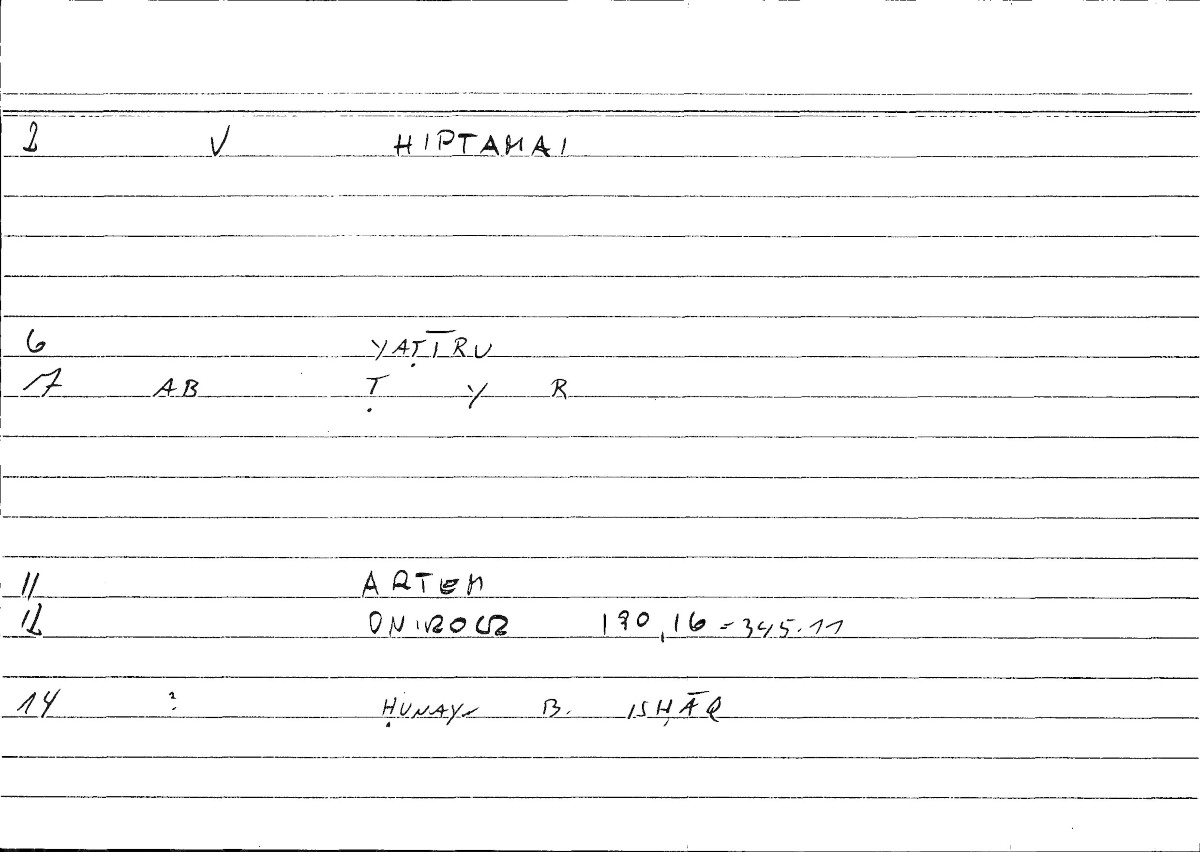 2 V HIPTAMAI
6 YAṬĪRU
7 AB Ṭ Y R
11 ARTEM
12 ONIROCR 190,16 = 345.11
14 ? ḤUNAYN B. ISḤĀQ